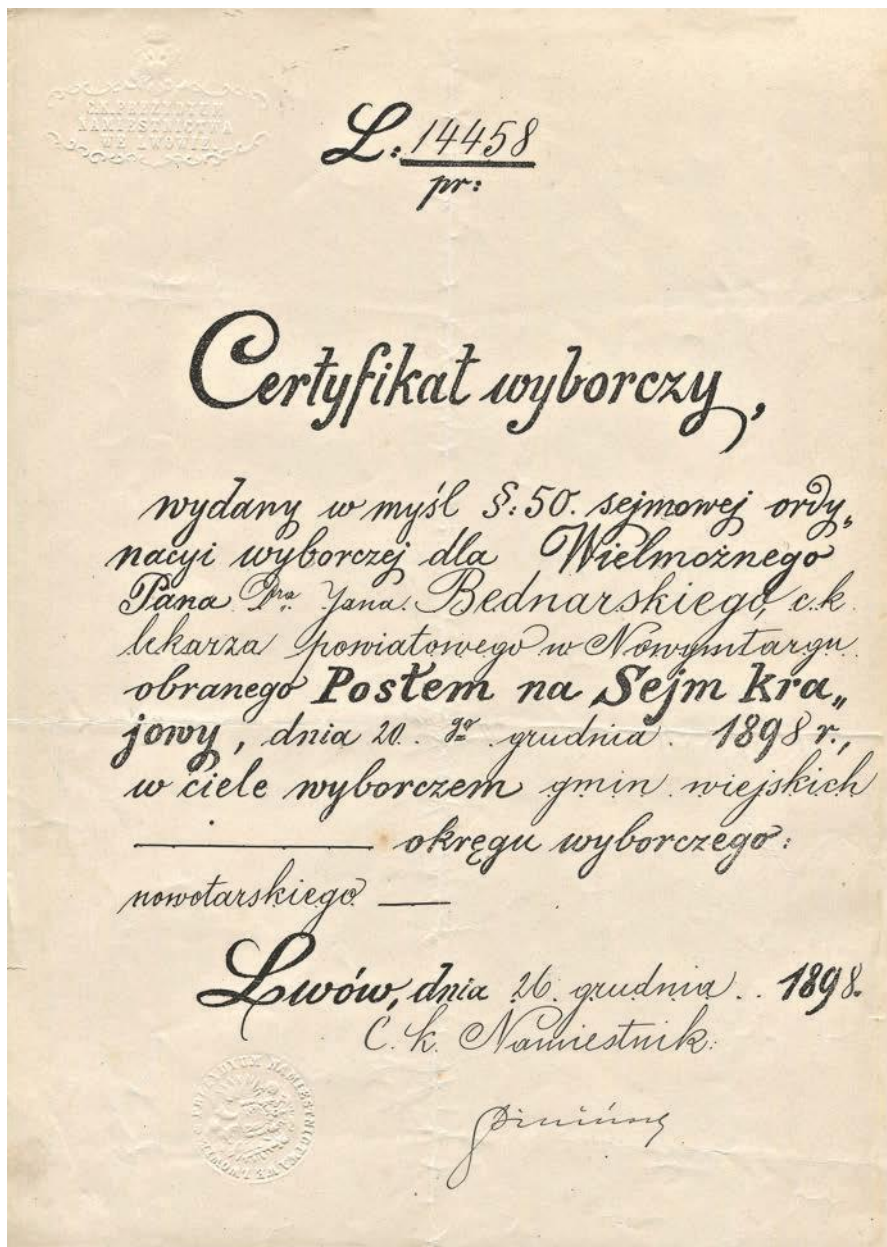 C.K. PREZYDYUM
NAMIESTNICTWA
WE LWOWIE.
L: 14458
pr:
Certyfikat wyborczy,
wydany w myśl §: 50. sejmowej ordy„
nacyi wyborczej dla Wielmożnego
Pana Dra. Jana Bednarskiego, c. k.
lekarza powiatowego w Nowymtargu
obranego Posłem na Sejm kra„
jowy, dnia 20. go grudnia 1898 r.,
w ciele wyborczem gmin wiejskich
okręgu wyborczego:
nowotarskiego
Lwów, dnia 26. grudnia 1898.
C. k. Namiestnik:
Piniński